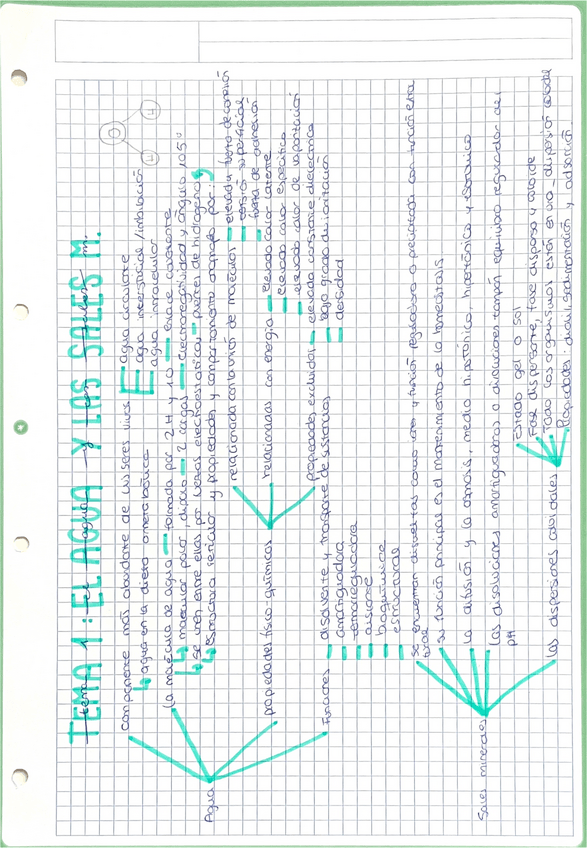 TEMA 1: EL AGUA Y LAS SALES M.
tema 1: el agua y las sales m.
Agua
componente más abundante de los seres vivos
agua circulante
agua intersticial / imbibición
agua intracelular
agua en la dieta o metabólica
la molécula de agua formada por 2 H y 1 O enlace covalente
O
H
H
molécula polar, dipolo 2 cargas electronegatividad y ángulo 105º
se unen entre ellas por fuerzas electroestáticas, puentes de hidrógeno
estructura reticular y propiedades y comportamiento anómalo por:
propiedades físico-químicas
relacionada con la unión de moléculas
elevada fuerza de cohesión
tensión superficial
fuerza de adhesión
relacionadas con energía
elevado calor latente
elevado calor específico
elevado calor de vaporización
propiedades excluidas
elevada constante dieléctrica
bajo grado de ionización
densidad
Funciones
disolvente y transporte de sustancias
amortiguadora
termorreguladora
bioquímica
estructuras
Sales minerales
se encuentran disueltas como iones y función reguladora o precipitada con función estructural
su función principal es el mantenimiento de la homeostasis
la difusión y la osmosis, medio hipotónico, hipertónico y isotónico
las disoluciones amortiguadoras o disoluciones tampón equilibrio regulador del
pH
las dispersiones coloidales
Estado gel o sol
Fase dispersante, fase dispersa y coloide
Todos los organismos están en una dispersión coloidal
Propiedades: diálisis, sedimentación y adsorción.